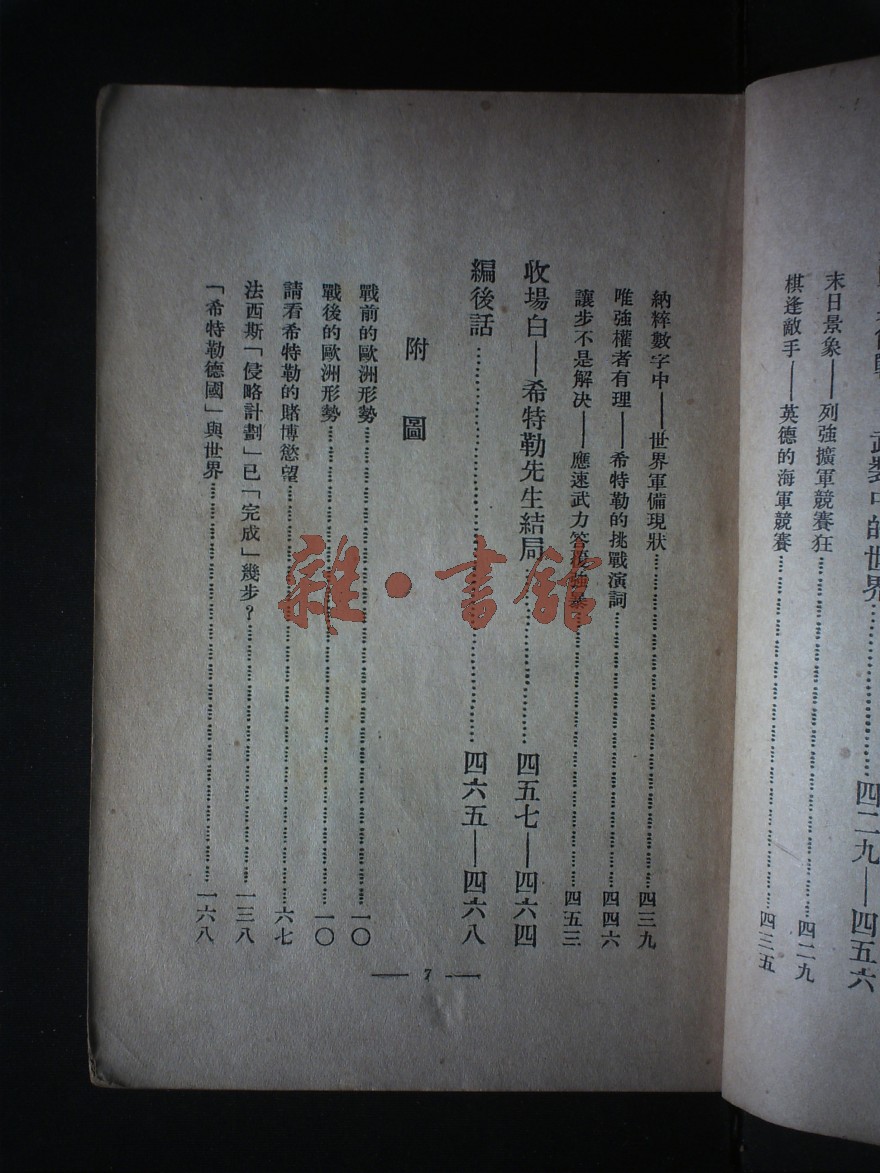 武裝中的世界……四二九—四五六
末日景象——列強擴軍競賽狂……四二九
棋逢敵手——英德的海軍競賽……四三五
納粹數字中——世界軍備現狀……四三九
唯強權者有理——希特勒的挑戰演詞……四四六
讓步不是解決——應速武力答復強暴……四五三
收場白——希特勒先生結局……四五七—四六四
編後話……四六五—四六八
附圖
戰前的歐洲形勢……一〇
戰後的歐洲形勢……一〇
請看希特勒的賭博慾望……六七
法西斯「侵略計劃」已「完成」幾步?……一三八
「希特勒德國」與世界……一六八
— 7 —
雜·書館